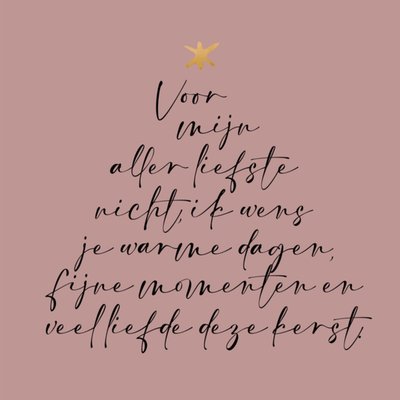 Voor
mijn
aller liefste
nicht, ik wens
je warme dagen,
fijne momenten en
veel liefde deze kerst.